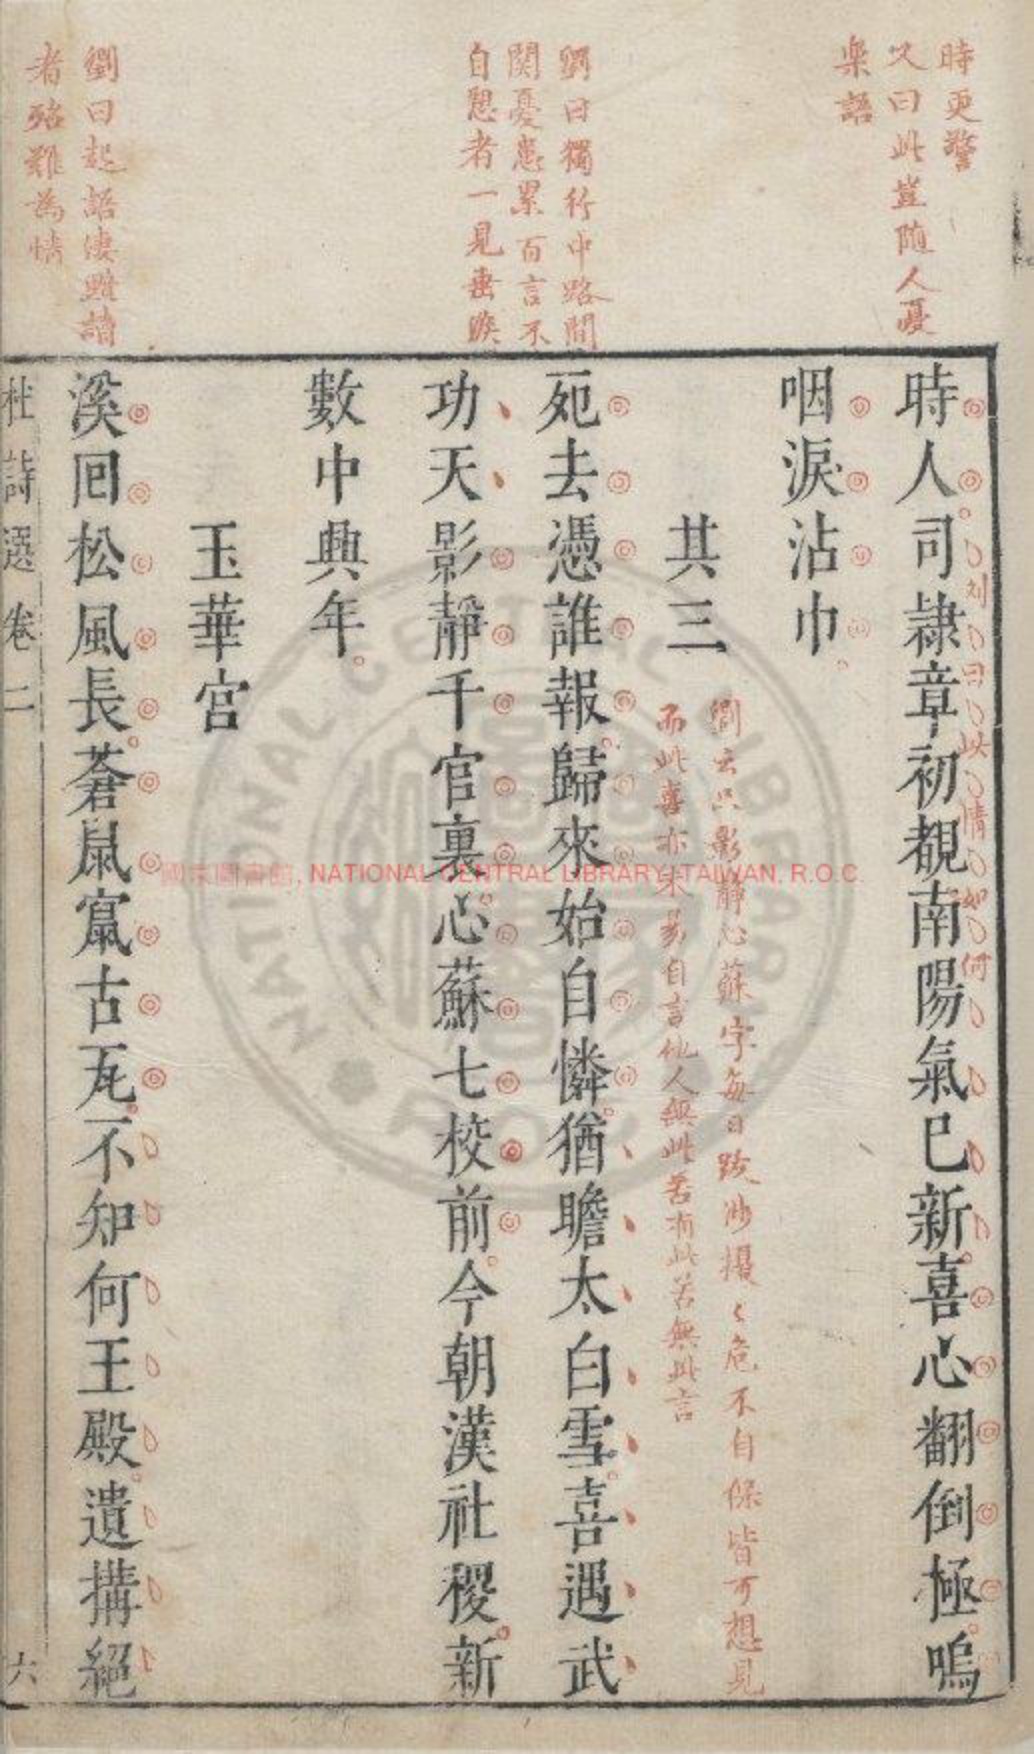 時更警
又曰此豈隨人憂
樂語
劉曰獨行中路間
関憂患累百言不
自懸者一見垂睽
劉曰起語淒黯讀
者殆難為情
時人司隷章初覩南陽氣已新喜心翻倒極嗚
刘曰此情如何
咽淚沾巾
其三
劉云只影靜心蘇字每日跋涉擾〻危不自保皆可想見
而此喜亦未易自言他人無此苦有此苦無此言
死去憑誰報歸來始自憐猶瞻太白雪喜遇武
功天影靜千官裏心蘇七校前今朝漢社稷新
數中興年
玉華宮
溪回松風長蒼鼠竄古瓦不知何王殿遺搆絕
杜詩選 卷二 六
國家圖書館, NATIONAL CENTRAL LIBRARY, TAIWAN, R.O.C.